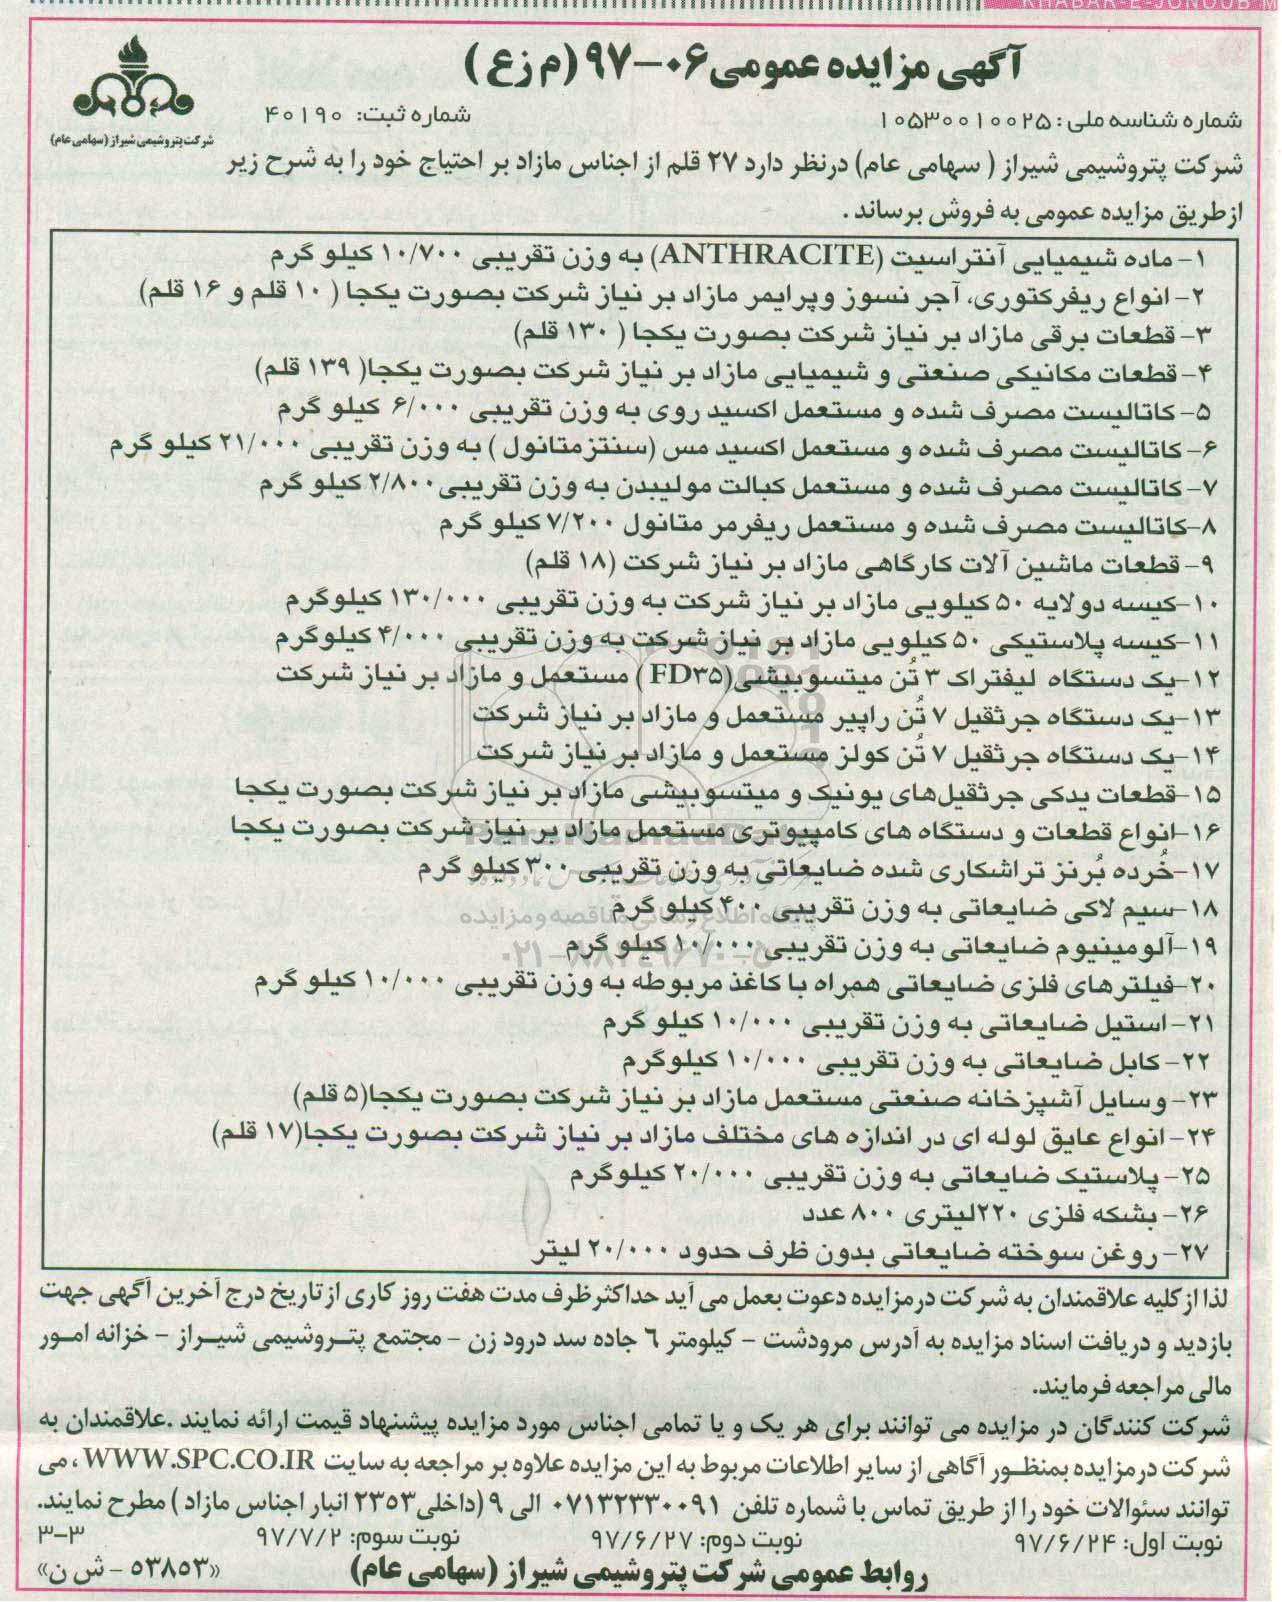 KHABAR-E-JONOUB
آگهی مزایده عمومی ۰۶-۹۷ (م زع)
شرکت پتروشیمی شیراز (سهامی عام)
شماره شناسه ملی: ۱۰۵۳۰۰۱۰۰۲۵ شماره ثبت: ۴۰۱۹۰
شرکت پتروشیمی شیراز ( سهامی عام) درنظر دارد ۲۷ قلم از اجناس مازاد بر احتیاج خود را به شرح زیر
ازطریق مزایده عمومی به فروش برساند .
۱- ماده شیمیایی آنتراسیت (ANTHRACITE) به وزن تقریبی ۱۰/۷۰۰ کیلو گرم
۲- انواع ریفرکتوری، آجر نسوز وپرایمر مازاد بر نیاز شرکت بصورت یکجا ( ۱۰ قلم و ۱۶ قلم)
۳- قطعات برقی مازاد بر نیاز شرکت بصورت یکجا ( ۱۳۰ قلم)
۴- قطعات مکانیکی صنعتی و شیمیایی مازاد بر نیاز شرکت بصورت یکجا( ۱۳۹ قلم)
۵- کاتالیست مصرف شده و مستعمل اکسید روی به وزن تقریبی ۶/۰۰۰ کیلو گرم
۶- کاتالیست مصرف شده و مستعمل اکسید مس (سنتزمتانول ) به وزن تقریبی ۲۱/۰۰۰ کیلو گرم
۷- کاتالیست مصرف شده و مستعمل کبالت مولیبدن به وزن تقریبی۲/۸۰۰ کیلو گرم
۸-کاتالیست مصرف شده و مستعمل ریفرمر متانول ۷/۲۰۰ کیلو گرم
۹- قطعات ماشین آلات کارگاهی مازاد بر نیاز شرکت (۱۸ قلم)
۱۰-کیسه دولایه ۵۰ کیلویی مازاد بر نیاز شرکت به وزن تقریبی ۱۳۰/۰۰۰ کیلوگرم
۱۱-کیسه پلاستیکی ۵۰ کیلویی مازاد بر نیاز شرکت به وزن تقریبی ۴/۰۰۰ کیلوگرم
۱۲-یک دستگاه لیفتراک ۳ تُن میتسوبیشی(FD۳۵ ) مستعمل و مازاد بر نیاز شرکت
۱۳-یک دستگاه جرثقیل ۷ تُن راپیر مستعمل و مازاد بر نیاز شرکت
۱۴-یک دستگاه جرثقیل ۷ تُن کولز مستعمل و مازاد بر نیاز شرکت
۱۵-قطعات یدکی جرثقیل‌های یونیک و میتسوبیشی مازاد بر نیاز شرکت بصورت یکجا
۱۶-انواع قطعات و دستگاه های کامپیوتری مستعمل مازاد بر نیاز شرکت بصورت یکجا
۱۷-خُرده بُرنز تراشکاری شده ضایعاتی به وزن تقریبی ۳۰۰ کیلو گرم
۱۸-سیم لاکی ضایعاتی به وزن تقریبی ۴۰۰ کیلو گرم
پایگاه اطلاع رسانی مناقصه و مزایده
۱۹-آلومینیوم ضایعاتی به وزن تقریبی ۱۰/۰۰۰ کیلو گرم
۰۲۱-۸۸۳۴۹۶۷۰-۵
۲۰-فیلترهای فلزی ضایعاتی همراه با کاغذ مربوطه به وزن تقریبی ۱۰/۰۰۰ کیلو گرم
۲۱- استیل ضایعاتی به وزن تقریبی ۱۰/۰۰۰ کیلو گرم
۲۲- کابل ضایعاتی به وزن تقریبی ۱۰/۰۰۰ کیلوگرم
۲۳- وسایل آشپزخانه صنعتی مستعمل مازاد بر نیاز شرکت بصورت یکجا(۵ قلم)
۲۴- انواع عایق لوله ای در اندازه های مختلف مازاد بر نیاز شرکت بصورت یکجا(۱۷ قلم)
۲۵- پلاستیک ضایعاتی به وزن تقریبی ۲۰/۰۰۰ کیلوگرم
۲۶- بشکه فلزی ۲۲۰لیتری ۸۰۰ عدد
۲۷- روغن سوخته ضایعاتی بدون ظرف حدود ۲۰/۰۰۰ لیتر
لذا از کلیه علاقمندان به شرکت درمزایده دعوت بعمل می آید حداکثرظرف مدت هفت روز کاری ازتاریخ درج آخرین آگهی جهت
بازدید و دریافت اسناد مزایده به آدرس مرودشت - کیلومتر ۶ جاده سد درود زن - مجتمع پتروشیمی شیراز - خزانه امور
مالی مراجعه فرمایند.
شرکت کنندگان در مزایده می توانند برای هر یک و یا تمامی اجناس مورد مزایده پیشنهاد قیمت ارائه نمایند .علاقمندان به
شرکت درمزایده بمنظور آگاهی از سایر اطلاعات مربوط به این مزایده علاوه بر مراجعه به سایت WWW.SPC.CO.IR ، می
توانند سئوالات خود را از طریق تماس با شماره تلفن ۰۷۱۳۲۳۳۰۰۹۱ الی ۹ (داخلی۲۳۵۳ انبار اجناس مازاد ) مطرح نمایند.
نوبت اول: ۹۷/۶/۲۴ نوبت دوم: ۹۷/۶/۲۷ نوبت سوم: ۹۷/۷/۲ ۳-۳
روابط عمومی شرکت پتروشیمی شیراز (سهامی عام) «۵۳۸۵۳ - ش ن»